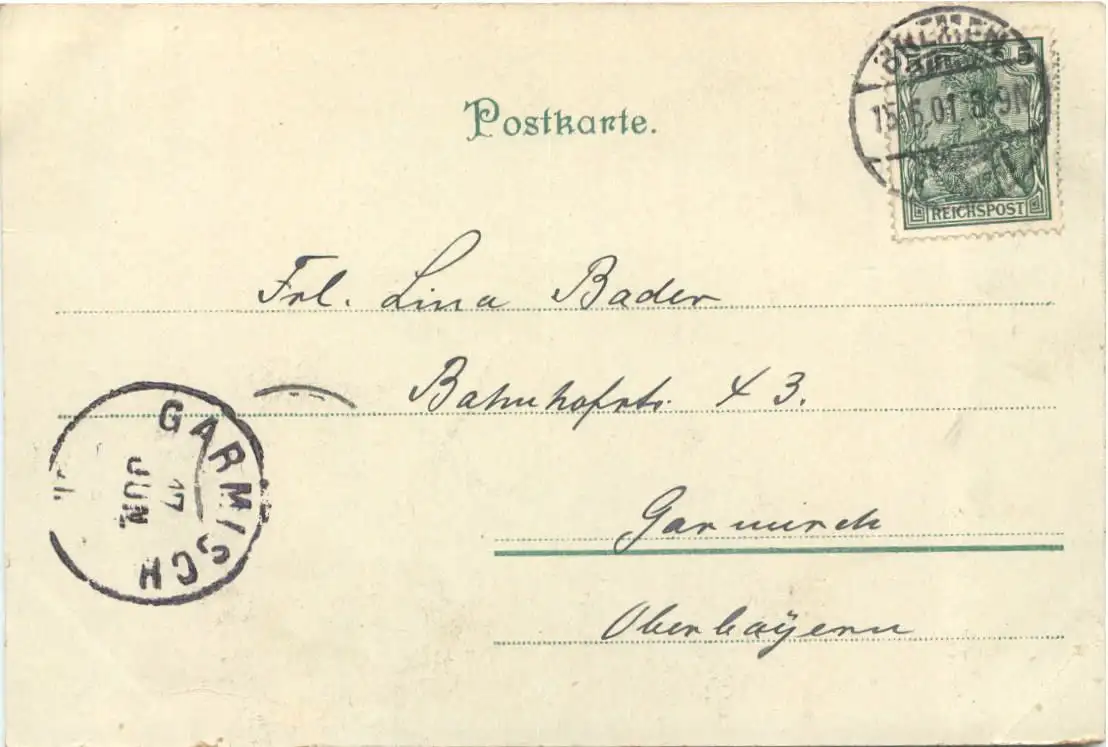 Postkarte.
BREMEN
5 5
15.6.01.8-9N
REICHSPOST
Frl. Lina Bader
Bahnhofstr. 43.
GARMISCH
17
JUN
Garmisch
Oberbayern